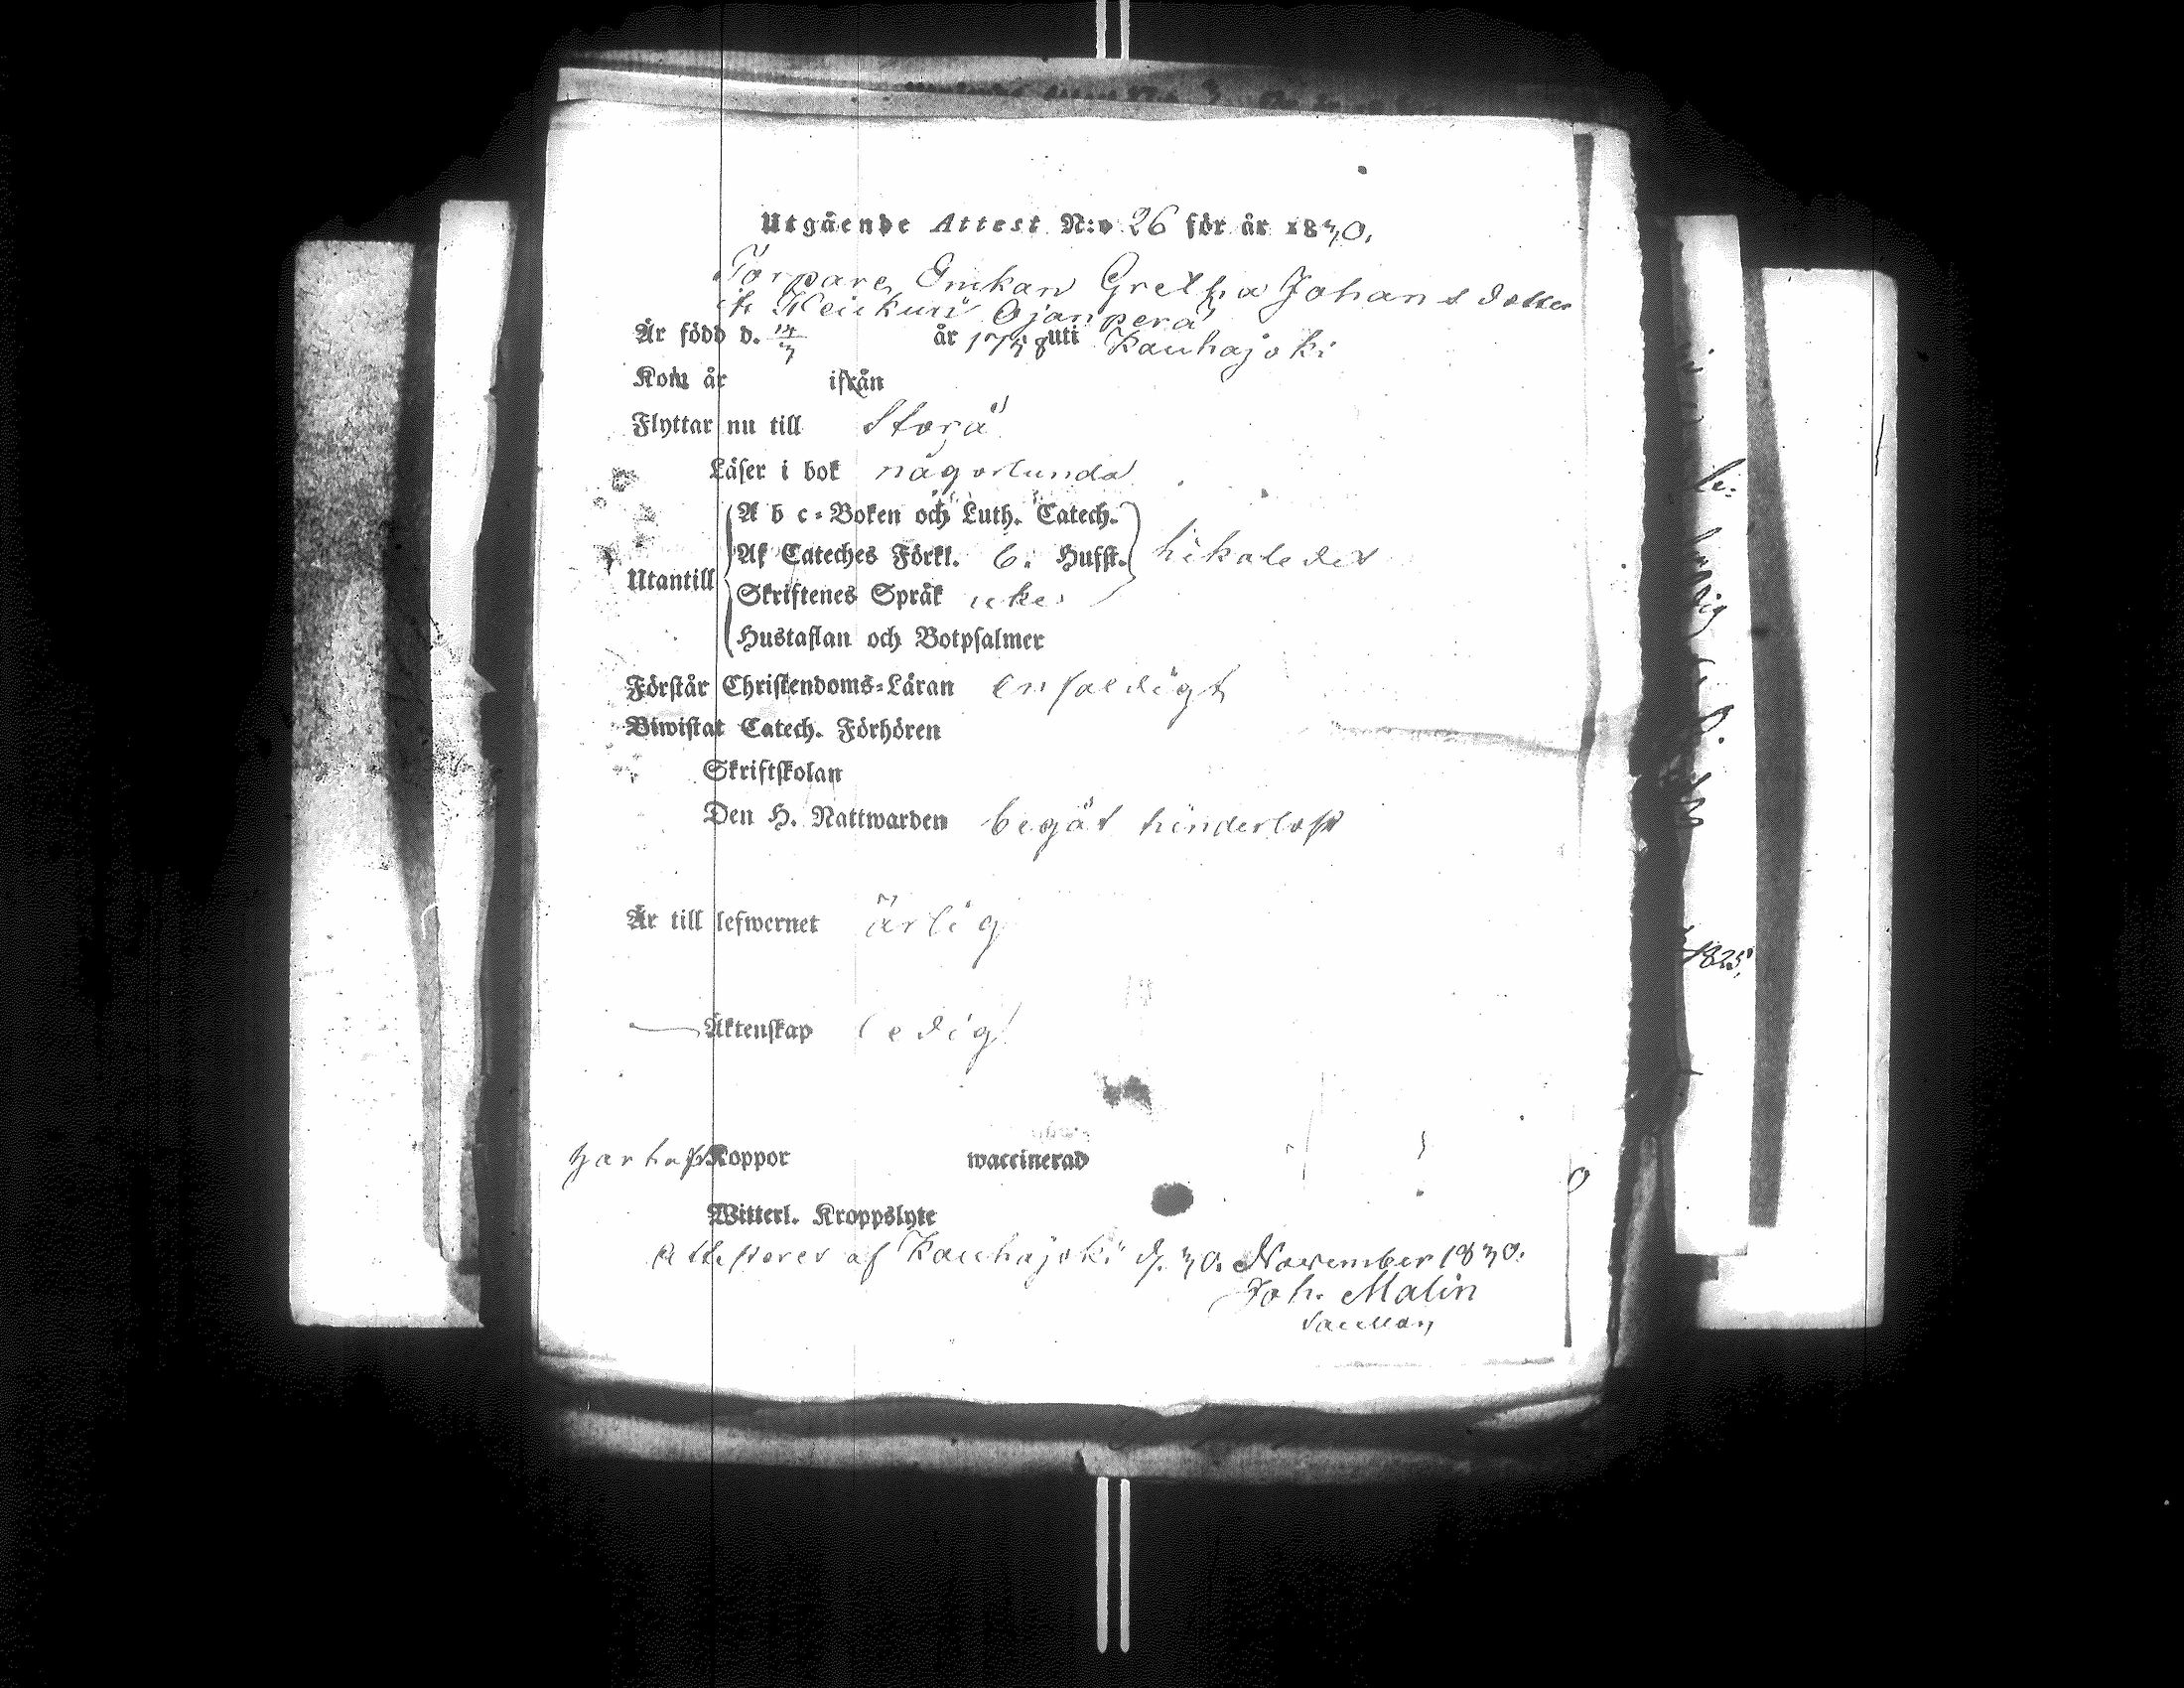 Utgående Attest N:o 26 för år 1830.
Torpare Enkan Gretha Johans dotter
Ojanperä
Är född d. 14/3 år 1758 uti Kauhajoki
Kom år ifrån
Flyttar nu till Storå
Läser i bok någorlunda
A b c-Boken och Luth. Catech.
Af Cateches Förkl. 6. Hufst. likaledes
Utantill
Skriftenes Språk icke
Hustaflan och Botpsalmer
Förstår Christendoms-Läran enfaldigt
Biwistat Catech. Förhören
Skriftskolan
Den H. Nattwarden begåt hinderlöst
Är till lefwernet ärlig
Äktenskap ledig
har haft Koppor waccinerad
Witterl. Kroppslyte
Attesteras af Kauhajoki d. 30. November 1830.
Joh. Malin
Sacellan
1825.